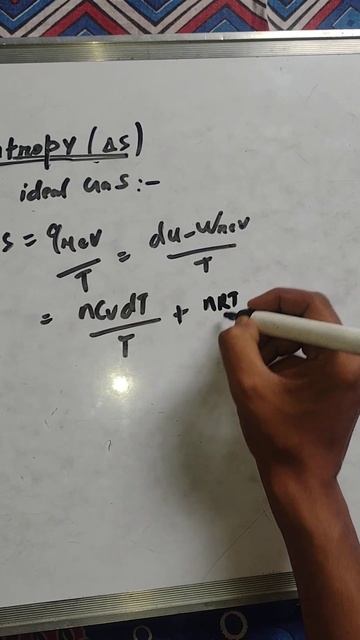 ntropy (Δs)
ideal Gas :-
s = qrev/T = du - wrev/T
= nCvdT/T + nRT